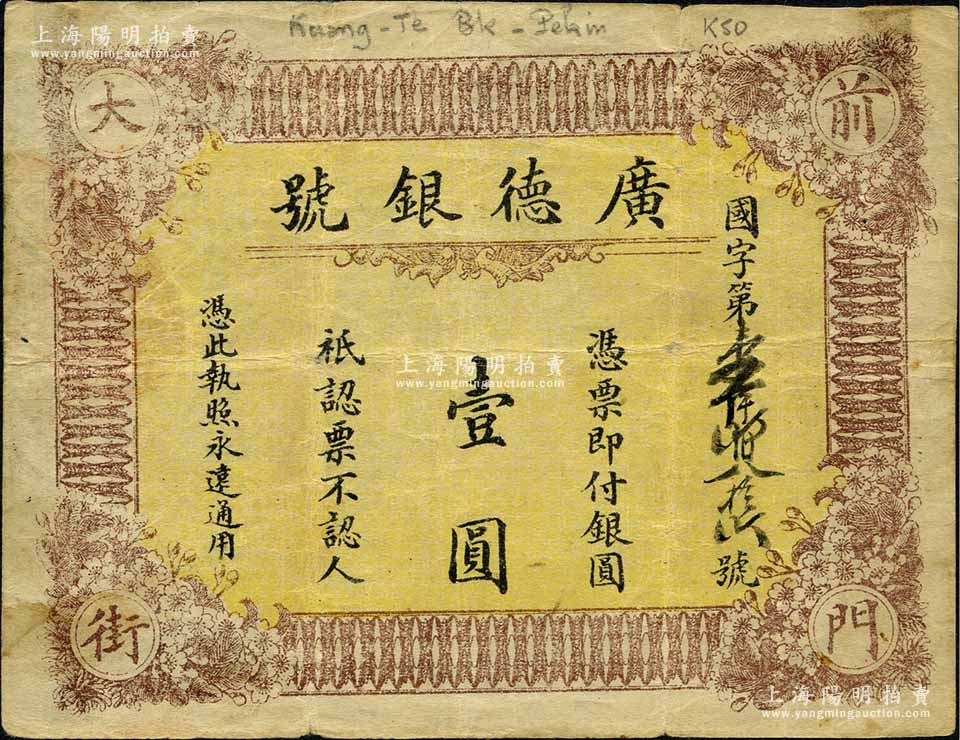 Kuang-Te Bk - Pekin K50
上海陽明拍賣
www.yangmingauction.com
前
門
大
街
廣德銀號
國字第
號
憑票即付銀圓
壹圓
祇認票不認人
憑此執照永遠通用
上海陽明拍賣
www.yangmingauction.com
上海陽明拍賣
www.yangmingauction.com